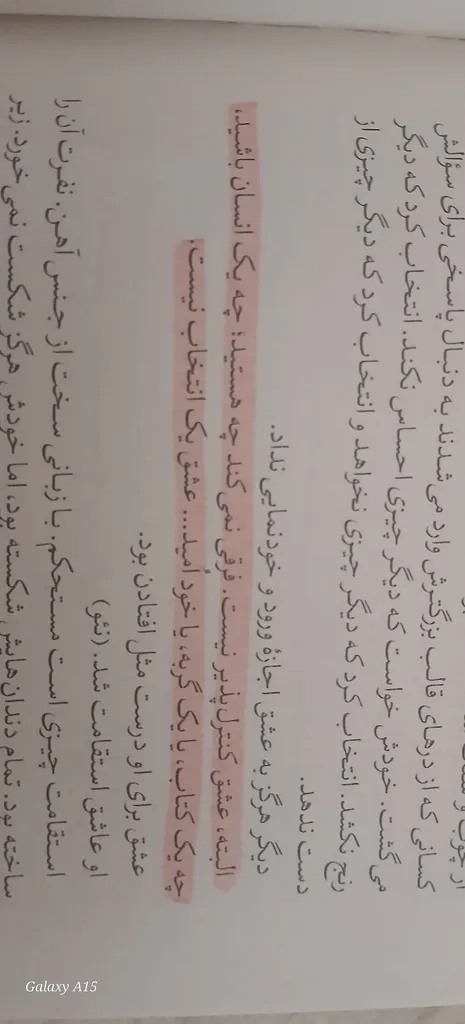 از چوب و
کسانی که از درهای قالب بزرگترش وارد می شدند به دنبال پاسخی برای سؤالش
می گشت. خودش خواست که دیگر چیزی احساس نکند. انتخاب کرد که دیگر
رنج نکشد. انتخاب کرد که دیگر چیزی نخواهد و انتخاب کرد که دیگر چیزی از
دست ندهد.
دیگر هرگز به عشق اجازهٔ ورود و خودنمایی نداد.
البته، عشق کنترل پذیر نیست. فرقی نمی کند چه هستید؛ چه یک انسان باشید،
چه یک کتاب، یا یک گربه، یا خود اُمید... عشق یک انتخاب نیست.
عشق برای او درست مثل افتادن بود.
او عاشق استقامت شد. (نئو)
استقامت چیزی است مستحکم. با زبانی سخت از جنس آهن. نفرت آن را
ساخته بود. تمام دندان هایش شکسته بود، اما خودش هرگز شکست نمی خورد. زیر
Galaxy A15